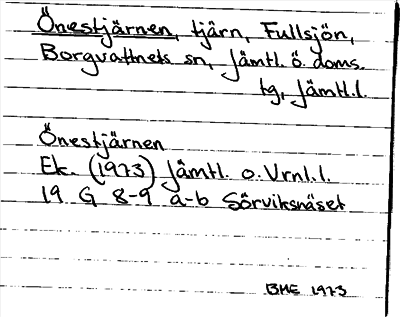 Önestjärnen, tjärn, Fullsjön,
Borgvattnets sn, Jämtl. ö. doms.
tg, Jämtl.l.
Önestjärnen
Ek. (1973) Jämtl. o. Vrnl.l.
19 G 8-9 a-b Sörviksnäset
BME 1973